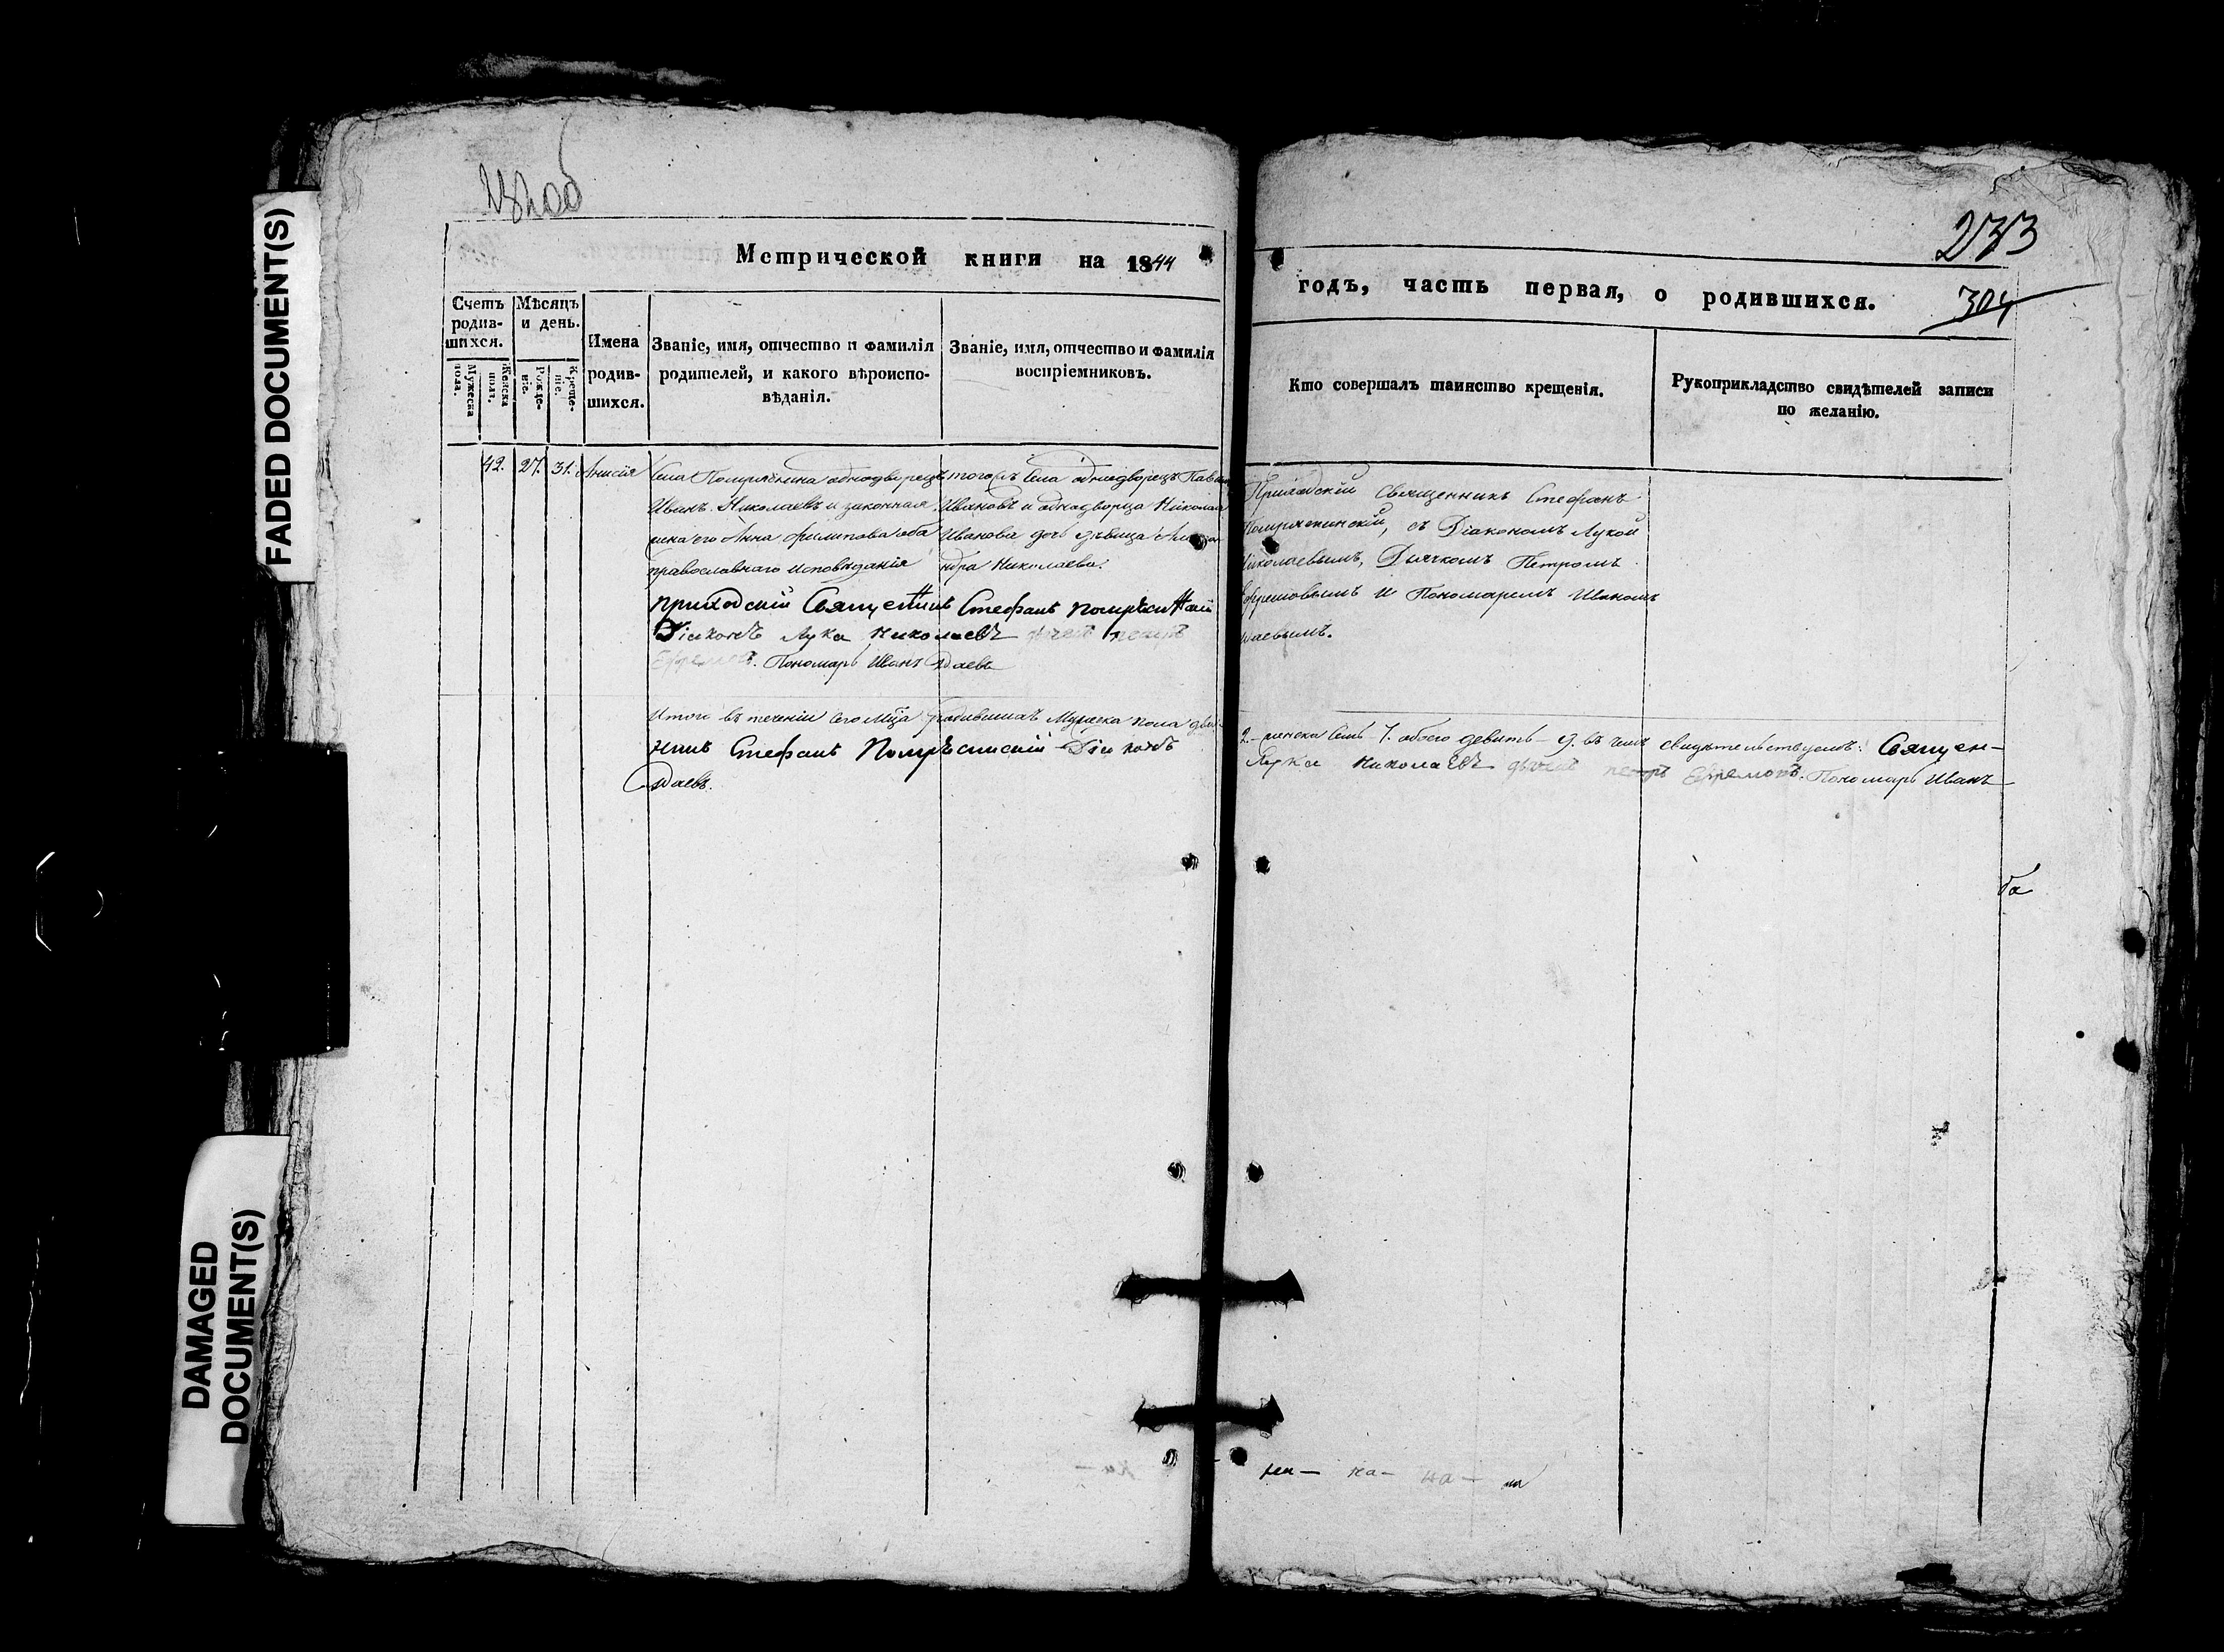 FADED DOCUMENT(S)
DAMAGED
DOCUMENT(S)
273
304
Метрической книги на 1844
годъ, часть первая, о родившихся.
Счетъ родив-шихся.
Мужеска пола.
Женска полъ.
Мѣсяцъ и день.
Рожде-ніе.
Креще-ніе.
Имена родив-шихся.
Званіе, имя, отчество и фамилія
родителей, и какого вѣроиспо-
вѣданія.
Званіе, имя, отчество и фамилія
воспріемниковъ.
Кто совершалъ таинство крещенія.
Рукоприкладство свидѣтелей записи
по желанію.
42. 27. 31. Анисія
Села однодворецъ
Иванъ Николаевъ и законная
жена его Анна Филипова оба
православнаго исповѣданія
того Села однодворецъ
Ивановъ и однодворца Николая
Иванова дочь дѣвица
Николаева.
Приходскій Священникъ Стефанъ
съ Діакономъ Лукой
Николаевымъ, Дьячкомъ Петромъ
Ефремовымъ и Пономаремъ Иваномъ
приходскій Священникъ Стефанъ
Діаконъ Лука Николаевъ дьячекъ петръ
Ефремовъ. Пономарь Иванъ
Итого въ теченіи сего мѣсяца родившихъ Мужеска пола
2. – женска семь 7. обоего девять – 9. въ чемъ свидѣтельствуемъ: Священ-
никъ Стефанъ Діаконъ
Лука Николаевъ дьячекъ петръ Ефремовъ. Пономарь Иванъ
ба
на – на – на –